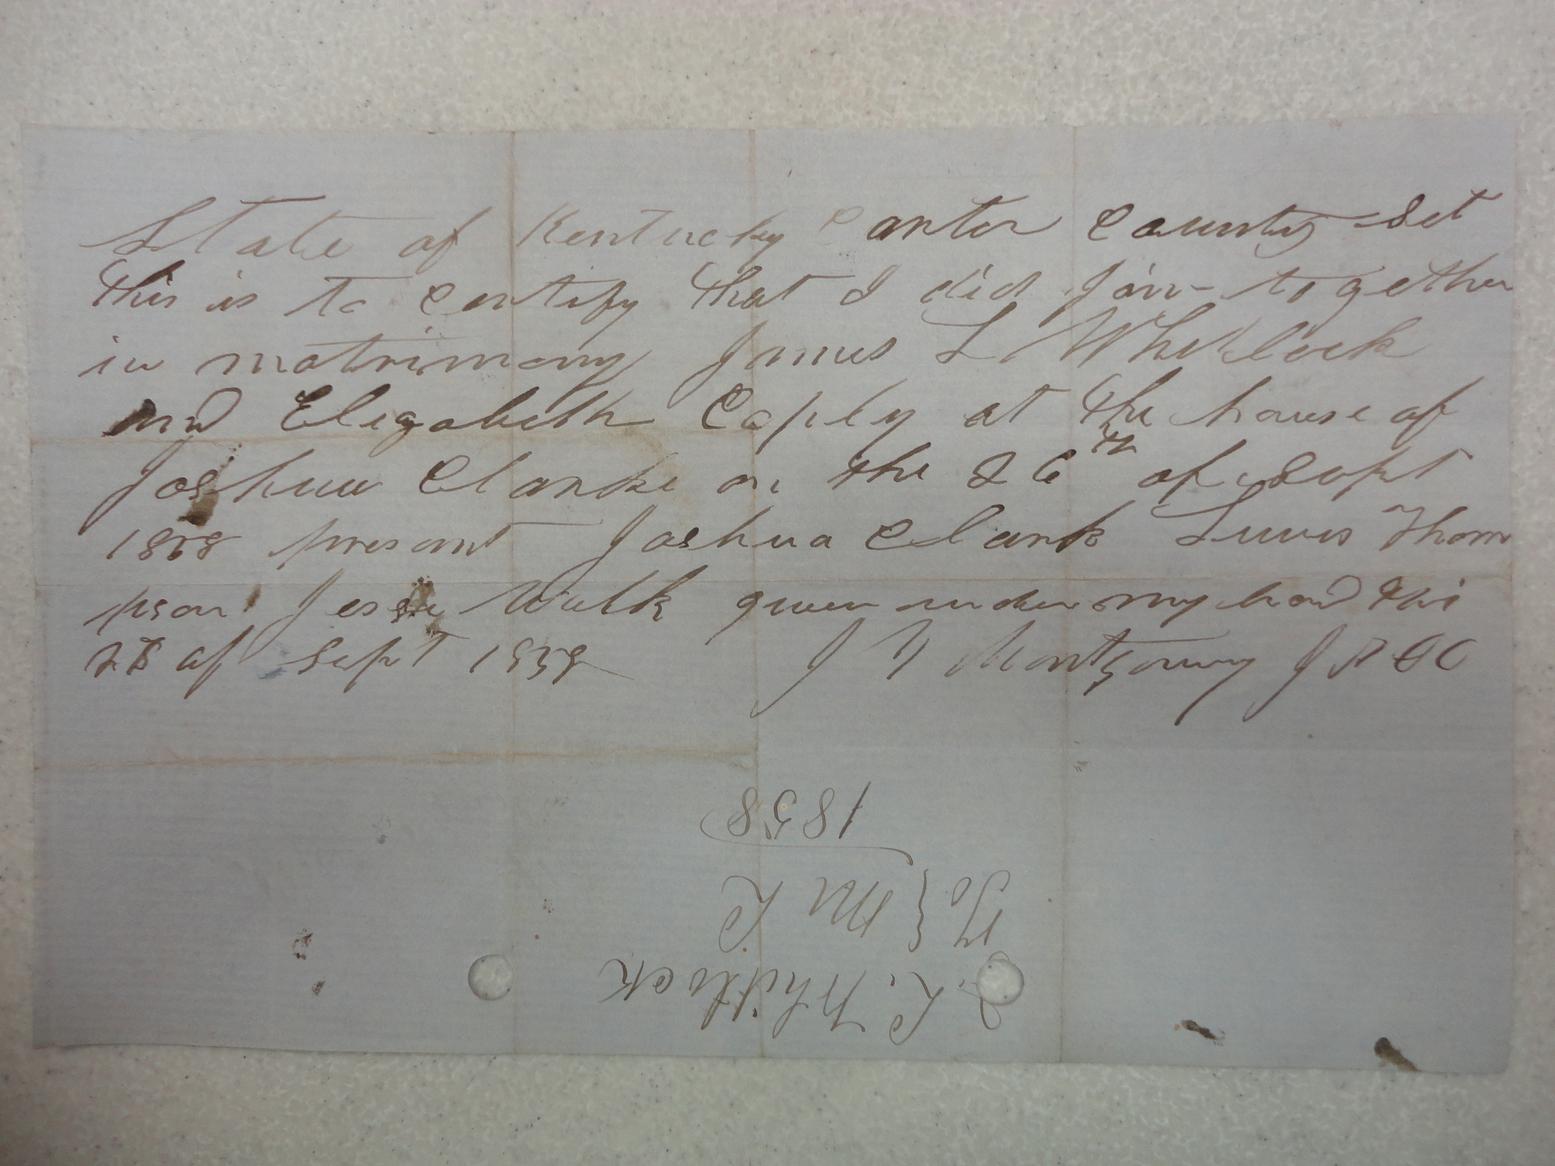 State of Kentucky Carter County Sct
This is to certify that I did Join together
in matrimony James L Whitlock
and Elizabeth Caply at the house of
Joshua Clarke on the 26th of Sept
1858 present Joshua Clark Lewis Thom
pson Jesse Walk given under my hand this
28 of Sept 1858 J N Montgomery J P C C
J. L. Whitlock
To } M L
1858